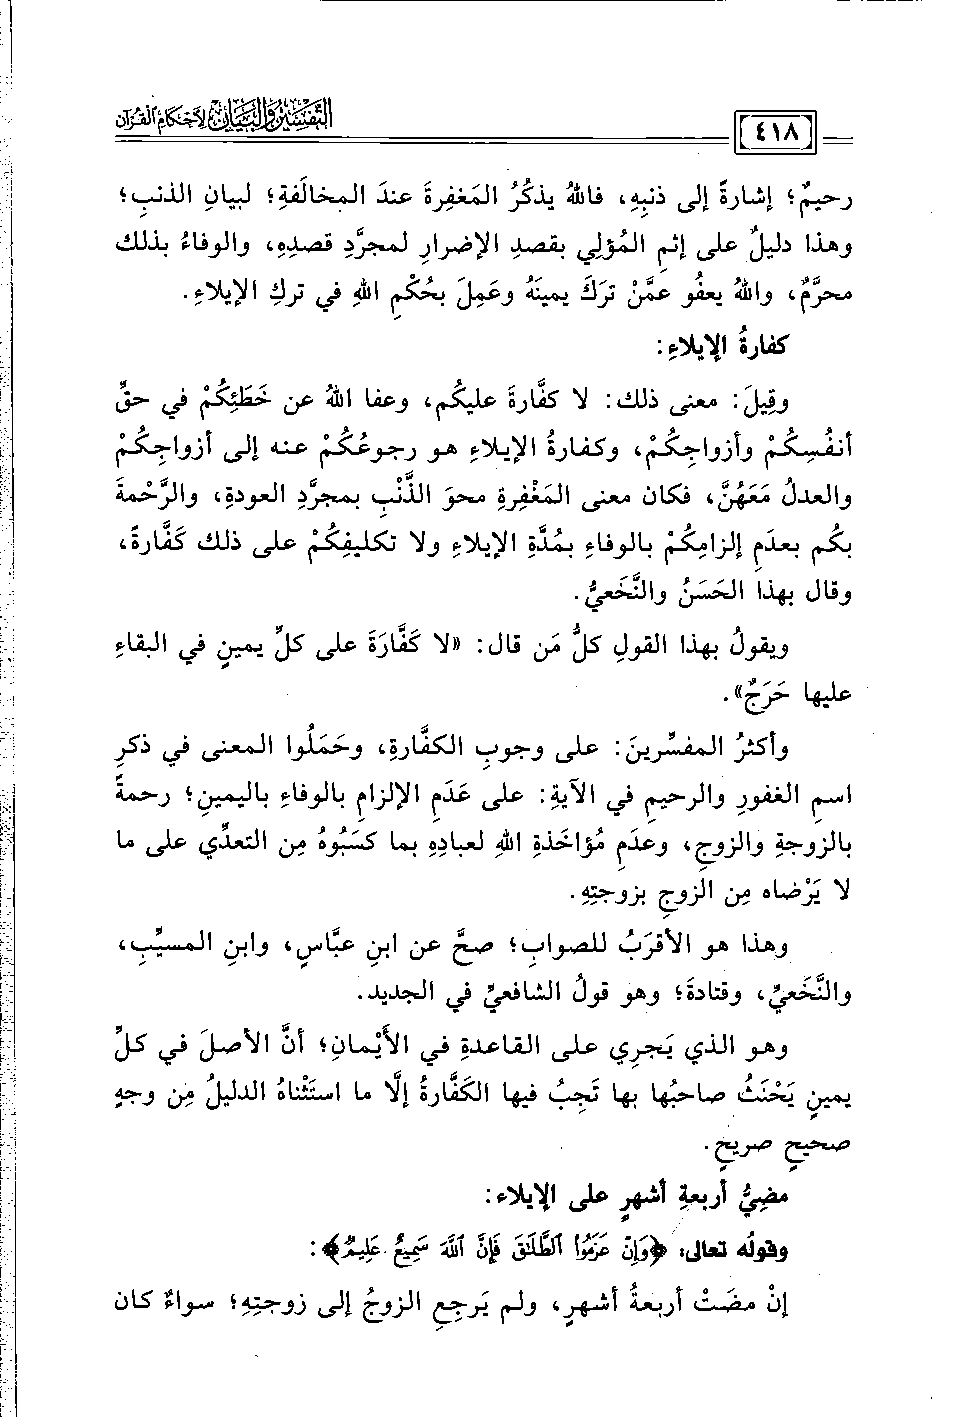 التفسير والبيان لأحكام القرآن
٤١٨
رحيمٌ؛ إشارةً إلى ذنبِهِ، فاللهُ يذكُرُ المَغفِرةَ عندَ المخالَفةِ؛ لبيانِ الذنبِ؛
وهذا دليلٌ على إثمِ المُؤلِي بقصدِ الإضرارِ لمجرَّدِ قصدِهِ، والوفاءُ بذلك
محرَّمٌ، واللهُ يعفُو عمَّنْ ترَكَ يمينَهُ وعَمِلَ بحُكْمِ اللهِ في تركِ الإيلاءِ.
كفارةُ الإيلاءِ:
وقِيلَ: معنى ذلك: لا كفَّارةَ عليكُم، وعفا اللهُ عن خَطَئِكُمْ في حقِّ
أنفُسِكُمْ وأزواجِكُمْ، وكفارةُ الإيلاءِ هو رجوعُكُمْ عنه إلى أزواجِكُمْ
والعدلُ مَعَهُنَّ، فكان معنى المَغْفِرةِ محوَ الذَّنْبِ بمجرَّدِ العودةِ، والرَّحْمةَ
بكُم بعدَمِ إلزامِكُمْ بالوفاءِ بمُدَّةِ الإيلاءِ ولا تكليفِكُمْ على ذلك كَفَّارةً،
وقال بهذا الحَسَنُ والنَّخَعيُّ.
ويقولُ بهذا القولِ كلُّ مَن قال: «لا كَفَّارَةَ على كلِّ يمينٍ في البقاءِ
عليها حَرَجٌ».
وأكثرُ المفسِّرينَ: على وجوبِ الكفَّارةِ، وحَمَلُوا المعنى في ذكرِ
اسمِ الغفورِ والرحيمِ في الآيةِ: على عَدَمِ الإلزامِ بالوفاءِ باليمينِ؛ رحمةً
بالزوجةِ والزوجِ، وعدَمِ مُؤاخَذةِ اللهِ لعبادِهِ بما كسَبُوهُ مِن التعدِّي على ما
لا يَرْضاه مِن الزوجِ بزوجتِهِ.
وهذا هو الأقرَبُ للصوابِ؛ صحَّ عن ابنِ عبَّاسٍ، وابنِ المسيِّبِ،
والنَّخَعيِّ، وقتادةَ؛ وهو قولُ الشافعيِّ في الجديد.
وهو الذي يَجرِي على القاعدةِ في الأَيْمانِ؛ أنَّ الأصلَ في كلِّ
يمينٍ يَحْنَثُ صاحبُها بها تَجِبُ فيها الكَفَّارةُ إلَّا ما استَثْناهُ الدليلُ مِن وجهٍ
صحيحٍ صريحٍ.
مضِيُّ أربعةِ أشهرٍ على الإيلاء:
وقولُه تعالى: ﴿وَإِنْ عَزَمُوا۟ ٱلطَّلَـٰقَ فَإِنَّ ٱللَّهَ سَمِيعٌ عَلِيمٌ﴾:
إنْ مضَتْ أربعةُ أشهرٍ، ولم يَرجِعِ الزوجُ إلى زوجتِهِ؛ سواءٌ كان